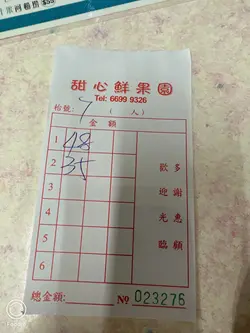 甜心鮮果園
Tel: 6699 9326
枱號: 7 ( 人)
金額
1 48
2 35
3
4
5
6
多謝惠顧
歡迎光臨
總金額: № 023276